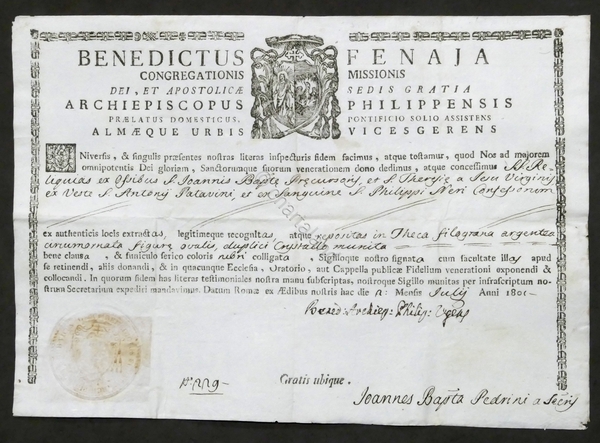 BENEDICTUS FENAJA
CONGREGATIONIS MISSIONIS
DEI, ET APOSTOLICÆ SEDIS GRATIA
ARCHIEPISCOPUS PHILIPPENSIS
PRÆLATUS DOMESTICUS, PONTIFICIO SOLIO ASSISTENS
ALMÆQUE URBIS VICESGERENS
UNiversis, & singulis præsentes nostras literas inspecturis fidem facimus, atque testamur, quod Nos ad majorem
omnipotentis Dei gloriam, Sanctorumque suorum venerationem dono dedimus, atque concessimus SS. Re-
liquias ex Ossibus S. Joannis Bapte Precursoris, et S. Theresie a Jesu Virginis
ex Veste S. Antonij Patavini, et ex Sanguine S. Philippi Neri Confessorum
ex authenticis locis extractas, legitimeque recognitas, atque repositas in Theca filograna argentea
circumornata figure ovalis, duplici Crystallo munita
bene clausa, & funiculo serico coloris rubri colligata, Sigilloque nostro signata cum facultate illas apud
se retinendi, aliis donandi, & in quacunque Ecclesia, Oratorio, aut Cappella publicæ Fidelium venerationi exponendi &
collocandi. In quorum fidem has literas testimoniales nostra manu subscriptas, nostroque Sigillo munitas per infrascriptum no-
strum Secretarium expediri mandavimus. Datum Romæ ex Ædibus nostris hac die 12 Mensis Julij Anni 1801
Bened: Archiep: Philip: Vgens
Nº 229
Gratis ubique.
Joannes Bapta Pedrini a Secris